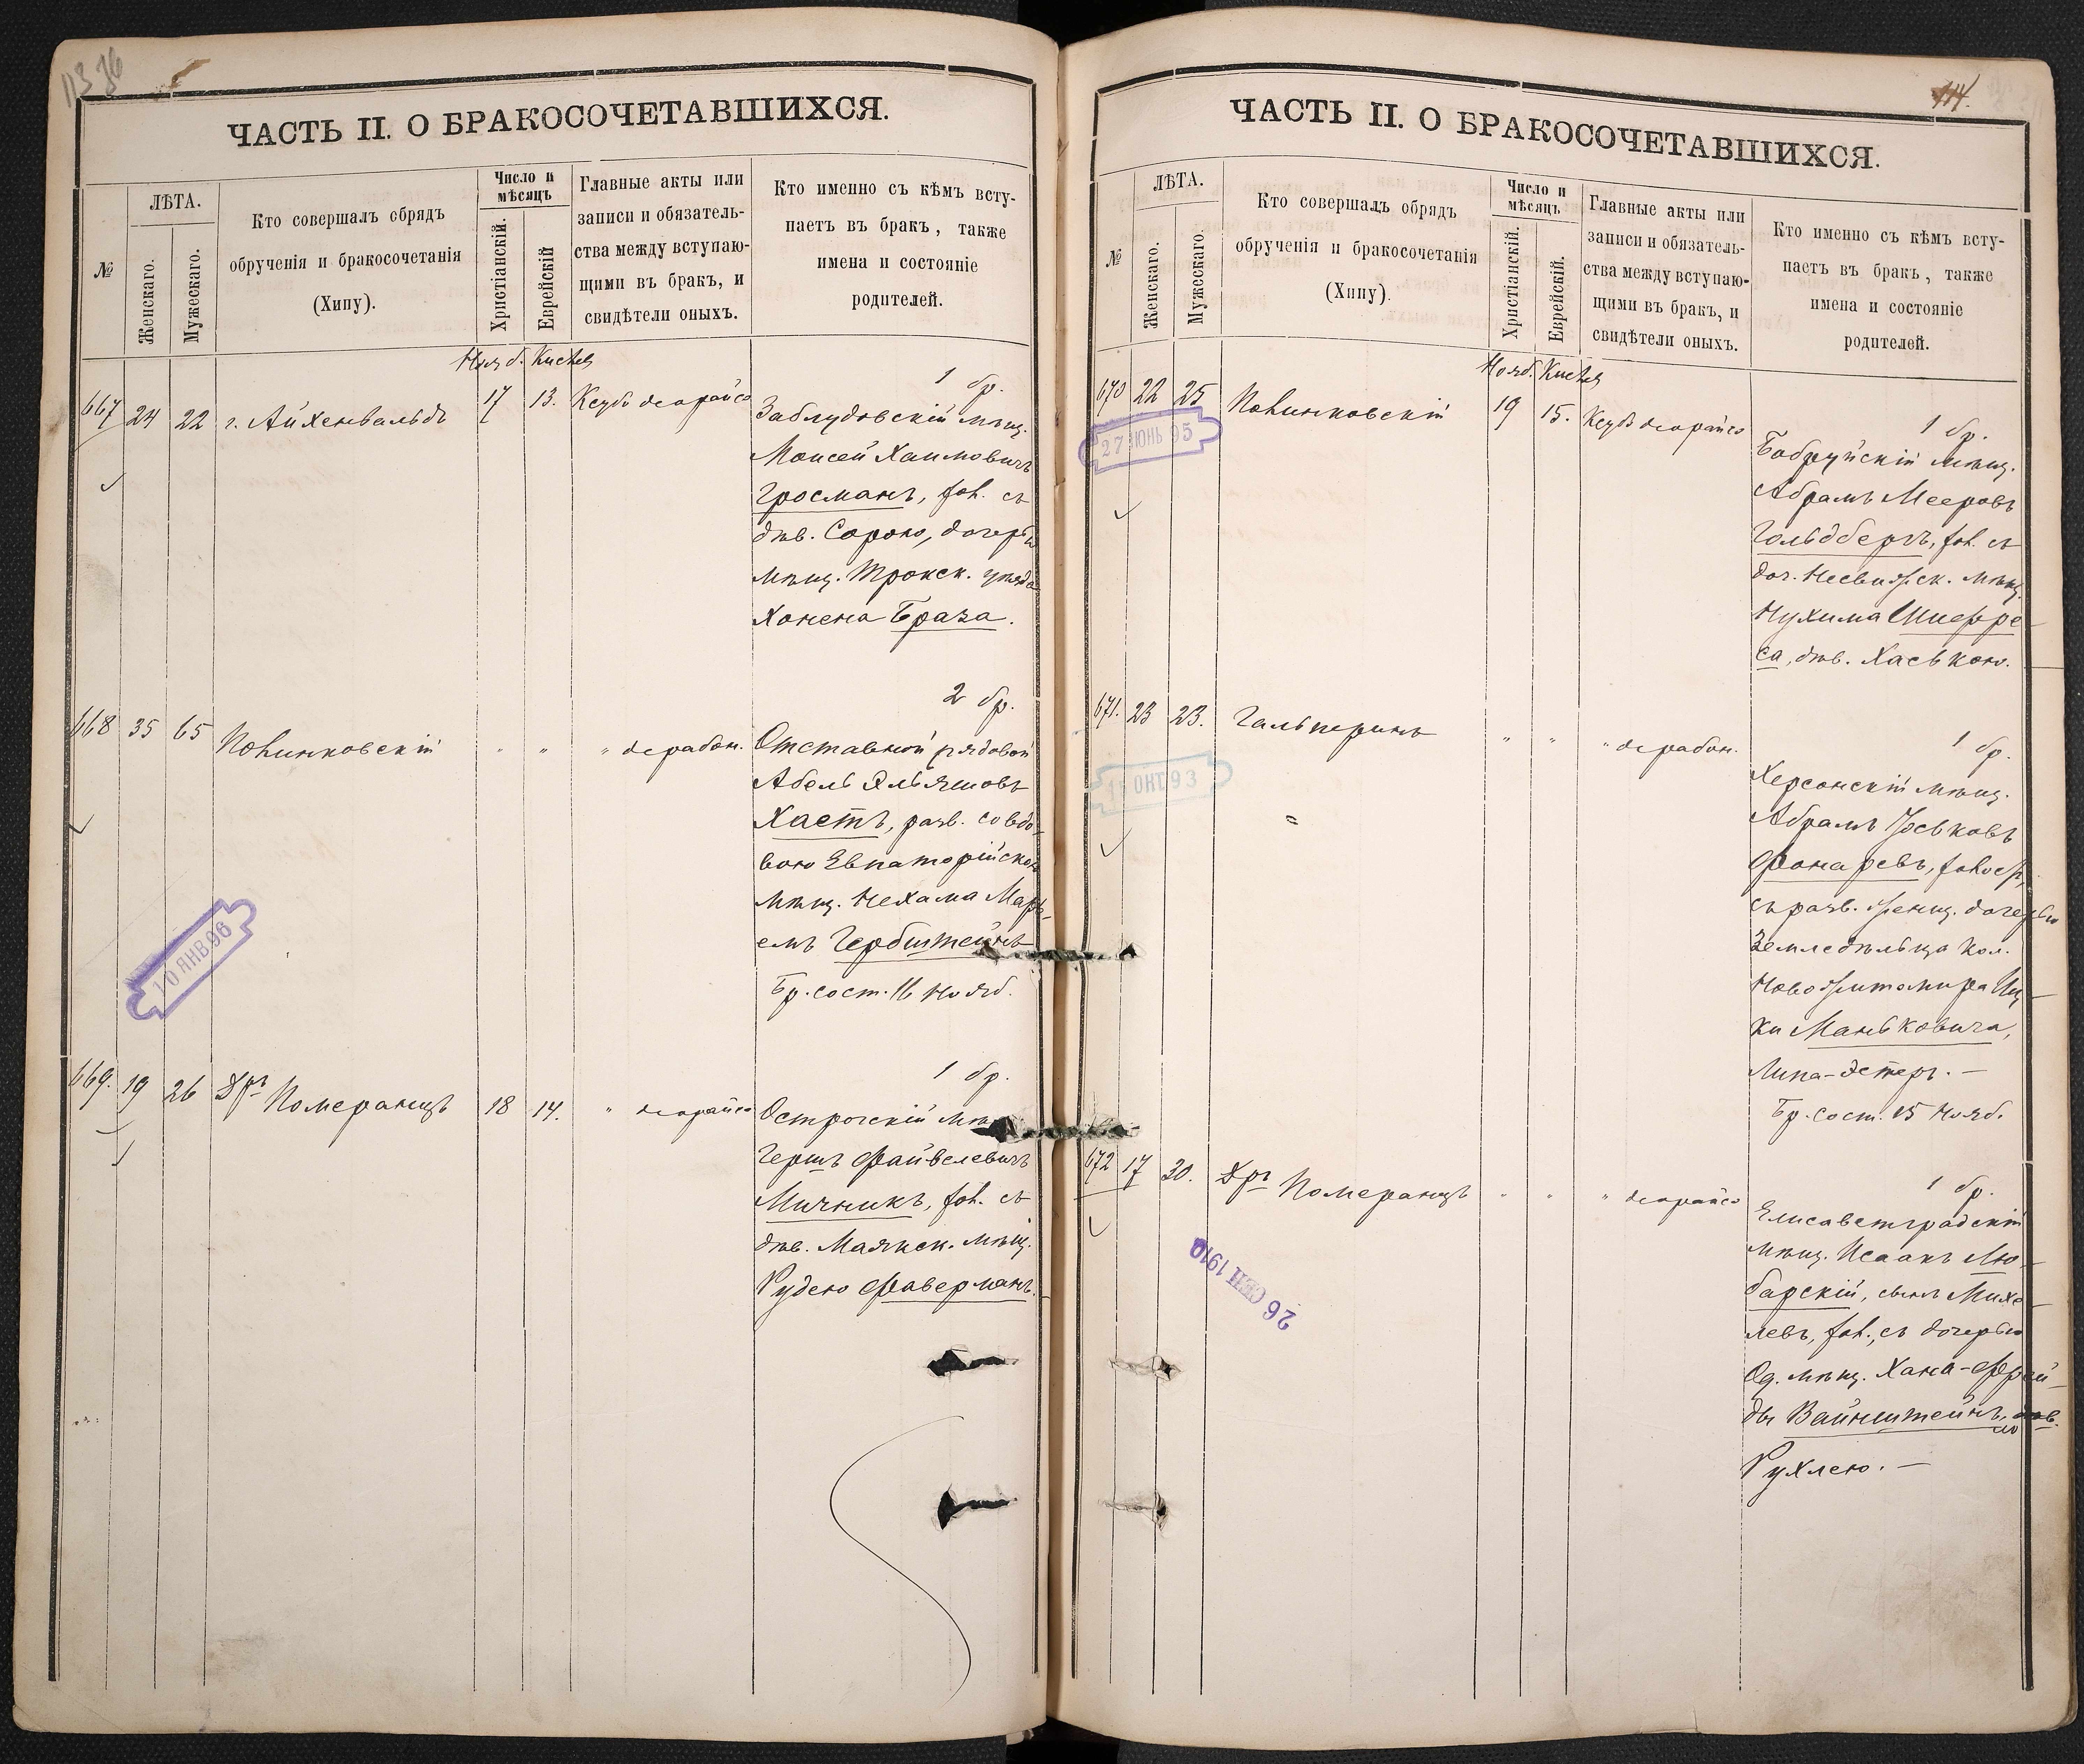 1136
ЧАСТЬ II. О БРАКОСОЧЕТАВШИХСЯ.
№
ЛѢТА.
Женскаго.
Мужескаго.
Кто совершалъ обрядъ
обрученія и бракосочетанія
(Хипу).
Число и
мѣсяцъ
Христіанскій.
Еврейскій
Главные акты или
записи и обязатель-
ства между вступаю-
щими въ бракъ, и
свидѣтели оныхъ.
Кто именно съ кѣмъ всту-
паетъ въ бракъ, также
имена и состояніе
родителей.
Нояб. Кислев
667 24 22 г. Айхенвальдъ 17 13. Ксубе деорайсо
1 бр.
Заблудовскій мѣщ.
Моисей Хаимовичъ
Гросманъ, хол. съ
дѣв. Сорою, дочерью
мѣщ. Трокск. уѣзда
Хонена Браза.
668 35 65 Полинковскій " " " дерабон.
2 бр.
Отставной рядовой
Абель Эльяшовъ
Хастъ, разв. со вдо-
вою Евпаторійской
мѣщ. Нехама Марь-
емъ Гербштейнъ
Бр. сост. 16 Нояб.
10 ЯНВ 96
669. 19 26 Дръ Померанцъ 18 14. " деорайсо
1 бр.
Острогскій мѣщ.
Гершъ Файвелевичъ
Мичникъ, хол. съ
дѣв. Маякск. мѣщ.
Рудею Фаверманъ.
114.
ЧАСТЬ II. О БРАКОСОЧЕТАВШИХСЯ.
№
ЛѢТА.
Женскаго.
Мужескаго.
Кто совершалъ обрядъ
обрученія и бракосочетанія
(Хипу).
Число и
мѣсяцъ
Христіанскій.
Еврейскій.
Главные акты или
записи и обязатель-
ства между вступаю-
щими въ бракъ, и
свидѣтели оныхъ.
Кто именно съ кѣмъ всту-
паетъ въ бракъ, также
имена и состояніе
родителей.
Нояб. Кислев
670 22 25 Полинковскій 19 15. Ксубе деорайсо
27 ІЮНЬ 95
1 бр.
Бобруйскій мѣщ.
Абрамъ Мееровъ
Гольдбергъ, хол. съ
доч. Несвижск. мѣщ.
Нухима Шиффре-
са, дѣв. Хаською.
671. 23 23. Гальперинъ " " " дерабон.
ОКТ 93
1 бр.
Херсонскій мѣщ.
Абрамъ Іоськовъ
Фонаревъ, холост,
съ разв. женщ. дочерью
Земледѣльца кол.
Новожитомира Иц-
ки Маньковича,
Липа-Эстеръ. —
Бр. сост. 15 Нояб.
672 17 30. Дръ Померанцъ " " " деорайсо
26 СЕН 1910
1 бр.
Елисаветградскій
мѣщ. Исаакъ Лю-
барскій, сынъ Михе-
левъ, хол., съ дочерью
Од. мѣщ. Хана-Фрей-
ды Вайнштейнъ, дѣв.
Рухлею. —